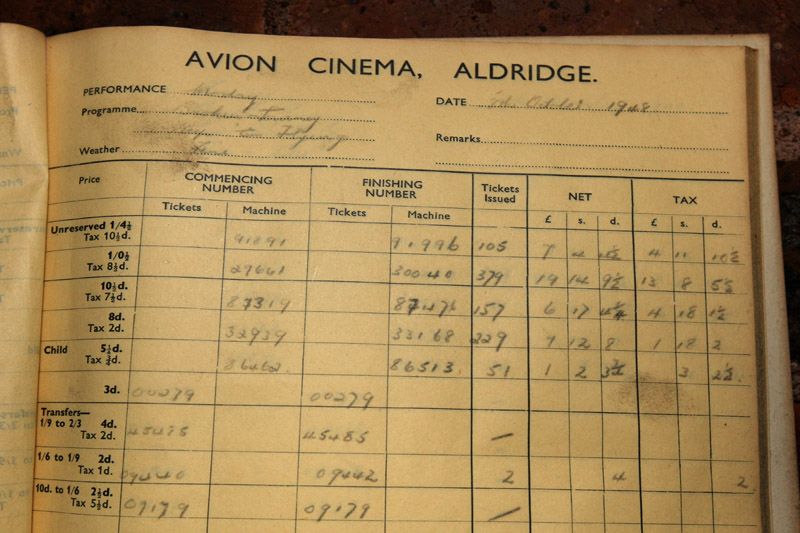 AVION CINEMA, ALDRIDGE.
PERFORMANCE Monday
DATE 1948
Programme
Flying
Remarks
Weather Fine
Price COMMENCING NUMBER FINISHING NUMBER Tickets Issued NET TAX
Tickets Machine Tickets Machine £ s. d. £ s. d.
Unreserved 1/4½ Tax 10½d. 91891 91996 105 7 4 4 11 10½
1/0½ Tax 8½d. 29661 30040 379 19 14 9½ 13 8 5½
10½d. Tax 7½d. 87319 87476 157 6 17 4 18 1½
8d. Tax 2d. 32939 33168 229 7 12 8 1 18 2
Child 5½d. Tax ¾d. 86462 86513 51 1 2 3 2¼
3d. 00279 00279
Transfers—
1/9 to 2/3 4d. Tax 2d. 45485 45485 —
1/6 to 1/9 2d. Tax 1d. 09440 09442 2 4 2
10d. to 1/6 2½d. Tax 5½d. 09179 09179 —